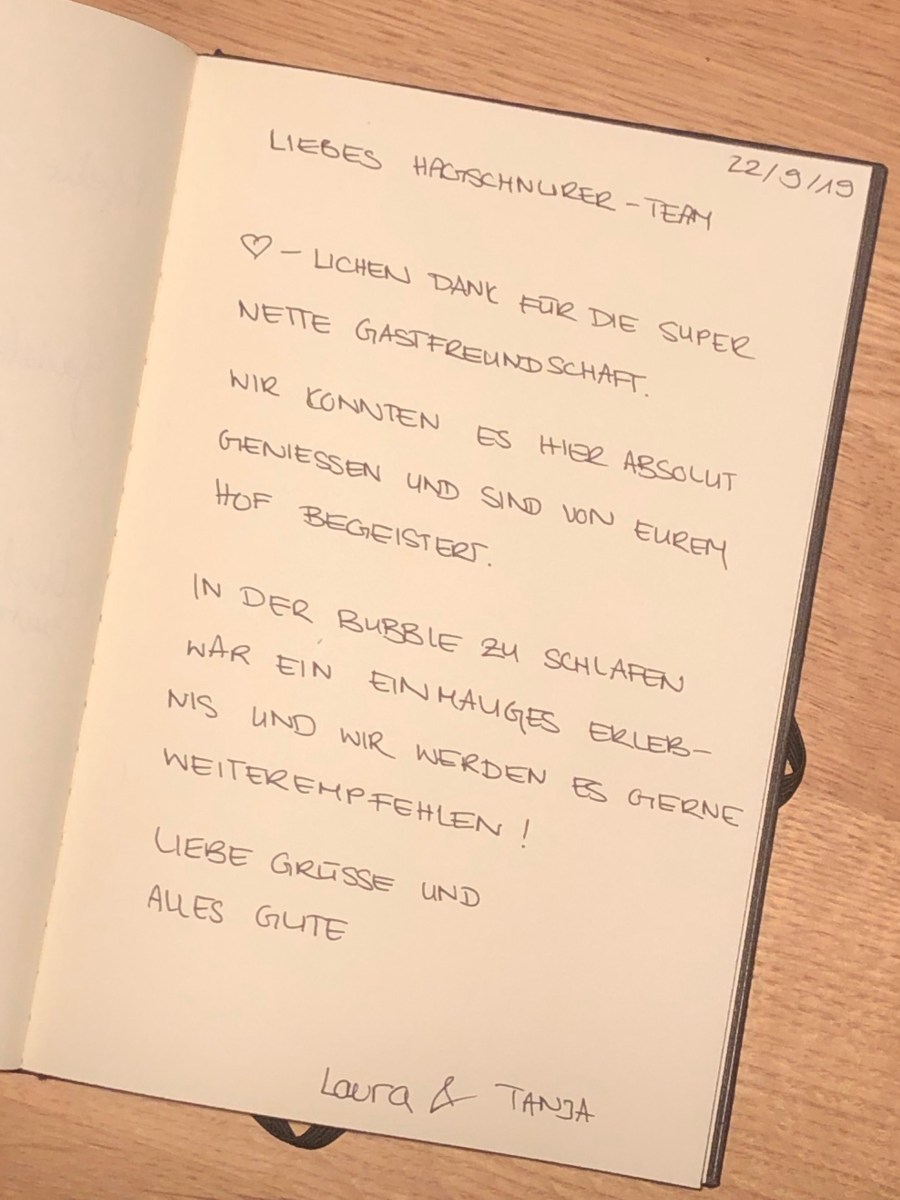 22/9/19
LIEBES HAGSCHNURER-TEAM
♡-LICHEN DANK FÜR DIE SUPER
NETTE GASTFREUNDSCHAFT.
WIR KONNTEN ES HIER ABSOLUT
GENIESSEN UND SIND VON EUREM
HOF BEGEISTERT.
IN DER BUBBLE ZU SCHLAFEN
WAR EIN EINMALIGES ERLEB-
NIS UND WIR WERDEN ES GERNE
WEITEREMPFEHLEN!
LIEBE GRÜSSE UND
ALLES GUTE
Laura & TANJA